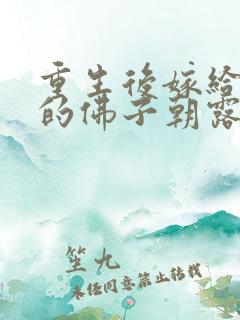 重生後嫁給
的佛子朝露
笙九
未经同意禁止转载